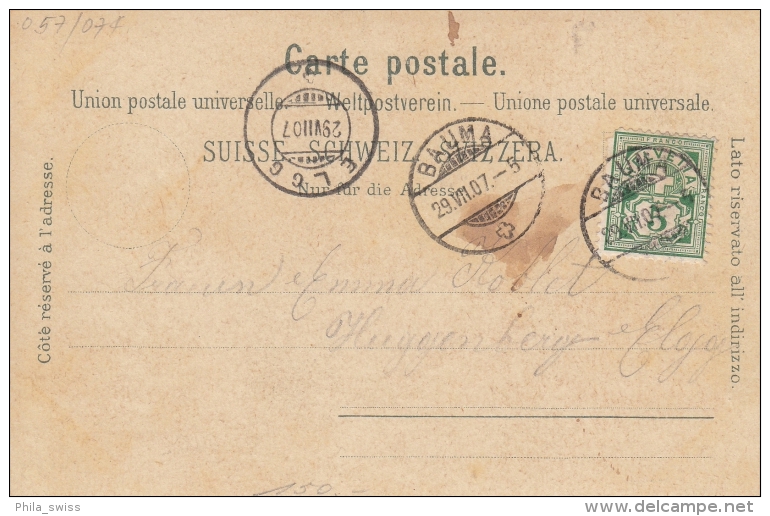 057/074
Carte postale.
Union postale universelle. — Weltpostverein. — Unione postale universale.
SUISSE. SCHWEIZ. SVIZZERA.
Nur für die Adresse.
Côté réservé à l'adresse.
Lato riservato all' indirizzo.
ELGG
29 VII 07
BAUMA
29.VII.07.—5
HELVETIA
FRANCO
5
Frauen Emma
Huggenberg Elgg
150.-
Phila_swiss
delcampe.net